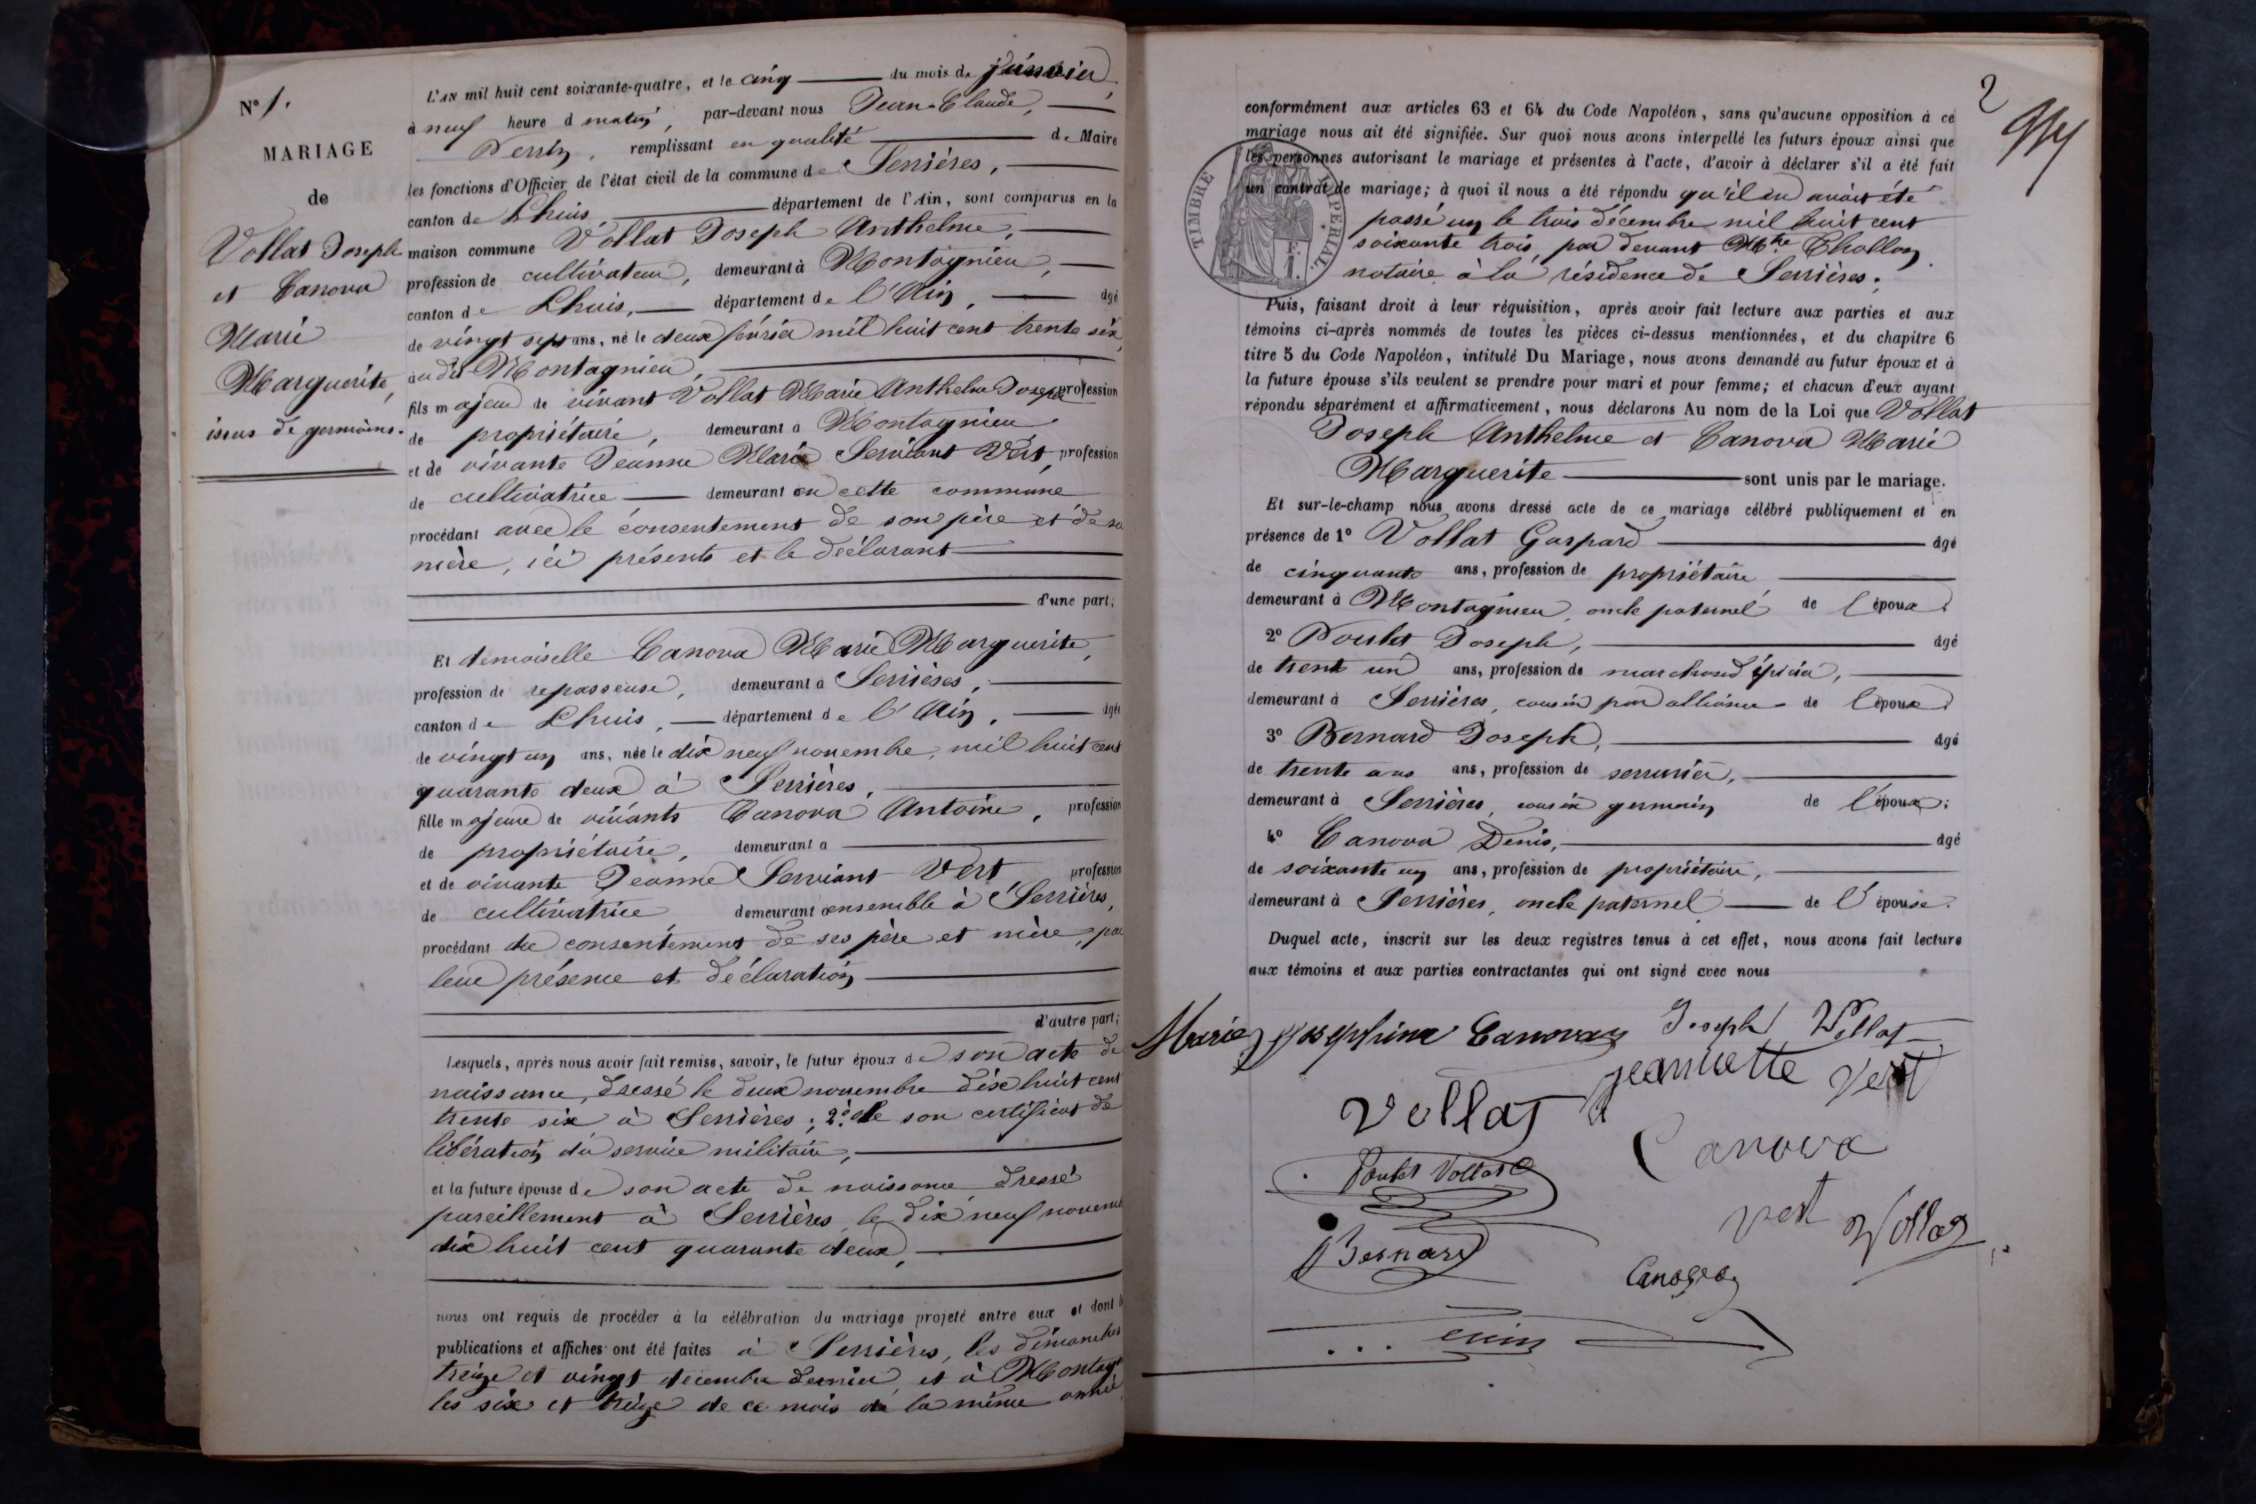 N° 1.
MARIAGE
de
Vollat Joseph
et Canova
Marie
Marguerite,
issus de germains.
L'AN mil huit cent soixante-quatre, et le cinq du mois de janvier,
à neuf heure d matin, par-devant nous Jean-Claude,
remplissant en qualité de Maire
les fonctions d'Officier de l'état civil de la commune de Serrières,
canton de Lhuis, département de l'Ain, sont comparus en la
maison commune Vollat Joseph Anthelme,
profession de cultivateur, demeurant à Montagnieu,
canton de Lhuis, département de l'Ain, âgé
de vingt sept ans, né le deux février mil huit cent trente six,
au dit Montagnieu,
fils majeur de vivant Vollat Marie Anthelme Joseph profession
de propriétaire, demeurant à Montagnieu
et de vivante Jeanne Marie Serviant Vert, profession
de cultivatrice demeurant en cette commune
procédant avec le consentement de son père et de sa
mère, ici présents et le déclarant
d'une part;
Et demoiselle Canova Marie Marguerite,
profession de repasseuse, demeurant à Serrières,
canton de Lhuis, département de l'Ain, âgée
de vingt un ans, née le dix neuf novembre, mil huit cent
quarante deux à Serrières,
fille majeure de vivants Canova Antoine, profession
de propriétaire, demeurant à
et de vivante Jeanne Serviant Vert profession
de cultivatrice demeurant ensemble à Serrières,
procédant du consentement de ses père et mère, par
leur présence et déclaration
d'autre part;
Lesquels, après nous avoir fait remise, savoir, le futur époux de son acte de
naissance, dressé le deux novembre dix huit cent
trente six à Serrières; 2° de son certificat de
libération du service militaire,
et la future épouse de son acte de naissance dressé
pareillement à Serrières le dix neuf novembre
dix huit cent quarante deux,
nous ont requis de procéder à la célébration du mariage projeté entre eux et dont les
publications et affiches ont été faites à Serrières, les dimanches
treize et vingt décembre dernier et à Montag
les six et treize de ce mois de la même année
2
conformément aux articles 63 et 64 du Code Napoléon, sans qu'aucune opposition à ce
mariage nous ait été signifiée. Sur quoi nous avons interpellé les futurs époux ainsi que
les personnes autorisant le mariage et présentes à l'acte, d'avoir à déclarer s'il a été fait
un contrat de mariage; à quoi il nous a été répondu qu'il en avait été
passé un le trois décembre mil huit cent
soixante trois, par devant Mtre Chollon
notaire à la résidence de Serrières.
TIMBRE IMPERIAL.
F.
1.
Puis, faisant droit à leur réquisition, après avoir fait lecture aux parties et aux
témoins ci-après nommés de toutes les pièces ci-dessus mentionnées, et du chapitre 6
titre 5 du Code Napoléon, intitulé Du Mariage, nous avons demandé au futur époux et à
la future épouse s'ils veulent se prendre pour mari et pour femme; et chacun d'eux ayant
répondu séparément et affirmativement, nous déclarons Au nom de la Loi que Vollat
Joseph Anthelme et Canova Marie
Marguerite sont unis par le mariage.
Et sur-le-champ nous avons dressé acte de ce mariage célébré publiquement et en
présence de 1° Vollat Gaspard âgé
de cinquante ans, profession de propriétaire
demeurant à Montagnieu, oncle paternel de l'époux;
2° Poulet Joseph, âgé
de trente un ans, profession de marchand épicier,
demeurant à Serrières, cousin par alliance de l'époux;
3° Bernard Joseph, âgé
de trente ans ans, profession de serrurier,
demeurant à Serrières, cousin germain de l'époux;
4° Canova Denis, âgé
de soixante un ans, profession de propriétaire,
demeurant à Serrières, oncle paternel de l'épouse.
Duquel acte, inscrit sur les deux registres tenus à cet effet, nous avons fait lecture
aux témoins et aux parties contractantes qui ont signé avec nous
Marie Josephine Canova Joseph Vollat
jeannette Vert
Vollat
Canova
Poulet Vollat
Vert Vollat
Bernard
Canova